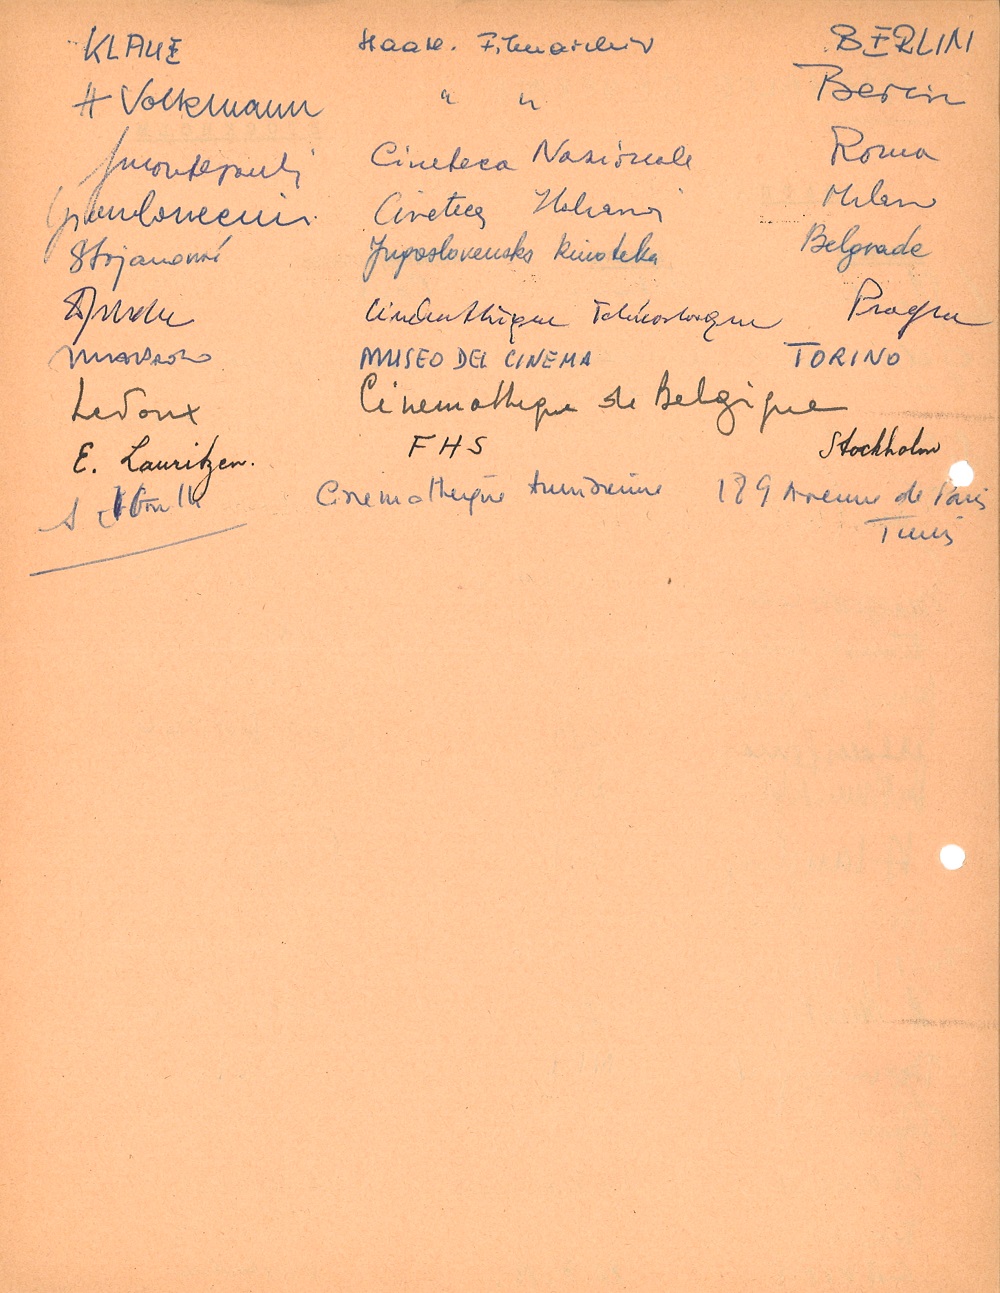 KLAUE Staatl. Filmarchiv BERLIN
H Volkmann " " Berlin
Cineteca Nazionale Roma
Cineteca Italiana Milano
Stojanović Jugoslovenska kinoteka Belgrade
Cinémathèque Tchécoslovaque Prague
MUSEO DEL CINEMA TORINO
Ledoux Cinémathèque de Belgique
E. Lauritzen. FHS Stockholm
Cinemathèque tunisienne 129 Avenue de Paris
Tunis